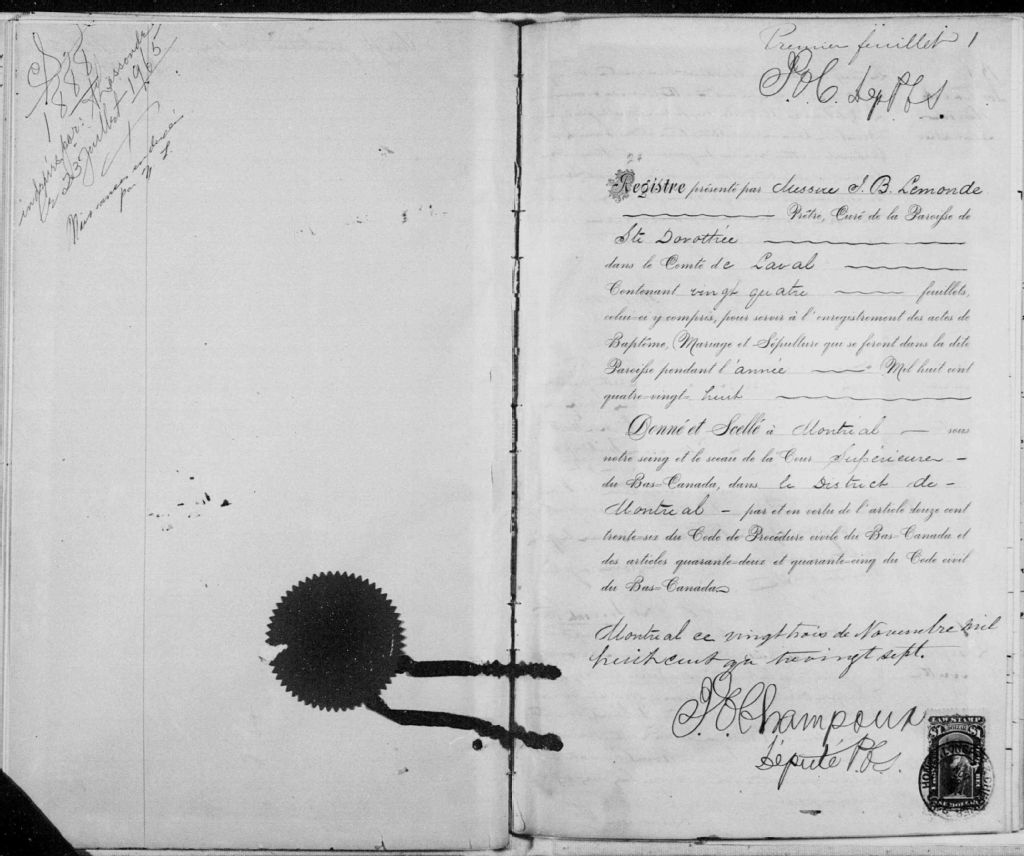 1888
inspiré par:
ce 23 juillet 1965
par
Premier feuillet 1
P.O.C. Dép. P.C.S.
Registre présenté par Messire J. B. Lemonde
Prêtre, Curé de la Paroisse de
Ste Dorothée
dans le Comté de Laval
Contenant vingt quatre feuillets,
celui-ci y compris, pour servir à l'enregistrement des actes de
Baptême, Mariage et Sépulture qui se feront dans la dite
Paroisse pendant l'année Mil huit cent
quatre-vingt- huit
Donné et Scellé à Montréal — sous
notre seing et le sceau de la Cour Supérieure –
du Bas-Canada, dans le District de –
Montréal – par et en vertu de l'article douze cent
trente-six du Code de Procédure civile du Bas-Canada et
des articles quarante-deux et quarante-cinq du Code civil
du Bas-Canada
Montréal ce vingt trois de Novembre Mil
huit cent quatrevingt sept.
Champoux
Député P.C.S.
LAW STAMP